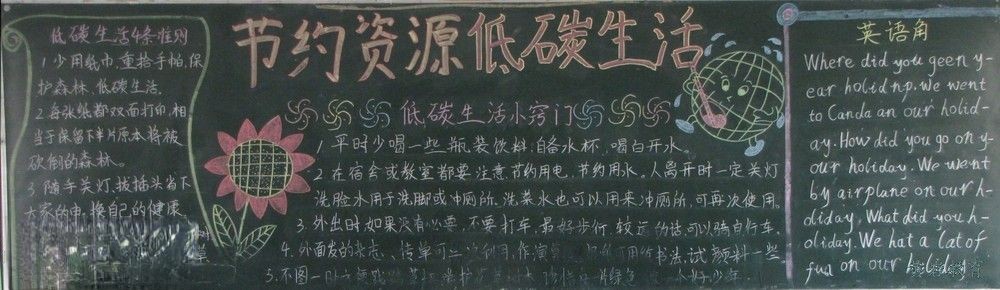 低碳生活4条准则
1 少用纸巾,重拾手帕,保
护森林、低碳生活.
2 每张纸都双面打印,相
当于保留下半片原本将被
砍倒的森林。
3 随手关灯,拔插头省下
大家的电,换自己的健康
节约资源低碳生活
低碳生活小窍门
1 平时少喝一些瓶装饮料,自备水杯,喝白开水.
2 在宿舍或教室都要注意节约用电,节约用水。人离开时一定关灯
洗脸水用于洗脚或冲厕所.洗菜水也可以用来冲厕所,可再次使用。
3.外出时如果没有必要,不要打车,最好步行,较远的话可以骑自行车,
4.外面发的杂志、传单可二次利用,作演算
书法,试颜料一些.
5.不图一时方便
英语角
Where did you geen y-
ear holid np. We went
to Canda an our holid-
ay. How did you go on y-
our holiday. We went
by airplane on our h-
oliday. What did you h-
oliday. We hat a lat of
fud on our holiday